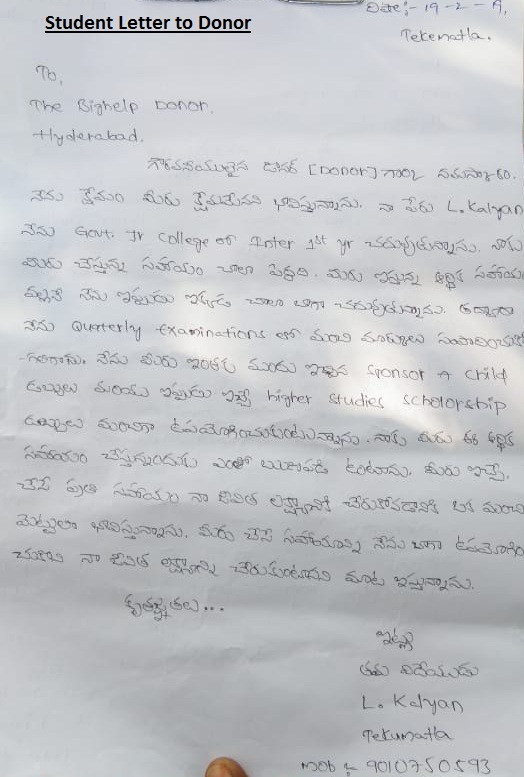 Student Letter to Donor
Date:- 19-2-19,
Tekumatla.
To,
The Bighelp Donor,
Hyderabad.
గౌరవనీయులైన డోనర్ [DONOR] గారికి నమస్కారం.
నేను క్షేమం మీరు క్షేమమేనని భావిస్తున్నాను. నా పేరు L. Kalyan
నేను Govt. Jr College లో Inter 1st yr చదువుతున్నాను. నాకు
మీరు చేస్తున్న సహాయం చాలా పెద్దది. మీరు ఇస్తున్న ఆర్థిక సహాయం
వల్లనే నేను ఇప్పుడు ఇక్కడ చాలా బాగా చదువుతున్నాను.
నేను Quarterly Examinations లో మంచి మార్కులు సంపాదించుకో
-గలిగాను. నేను మీరు ఇంతకు ముందు ఇచ్చిన Sponsor A child
డబ్బులు మరియు ఇప్పుడు ఇచ్చే higher studies scholorship
డబ్బులు మంచిగా ఉపయోగించుకుంటున్నాను. నాకు మీరు ఈ ఆర్థిక
సహాయం చేస్తున్నందుకు ఎంతో ఋణపడి ఉంటాను. మీరు ఇచ్చే,
చేసే ప్రతి సహాయం నా జీవిత లక్ష్యానికి చేరుకోవడానికి ఒక మంచి
మెట్టులా భావిస్తున్నాను. మీరు చేసే సహాయాన్ని నేను బాగా ఉపయోగిం
చుకుని నా జీవిత లక్ష్యాన్ని చేరుకుంటానని మాట ఇస్తున్నాను.
కృతజ్ఞతలు...
ఇట్లు
తమ విధేయుడు
L. Kalyan
Tekumatla
Mob :- 9010750593